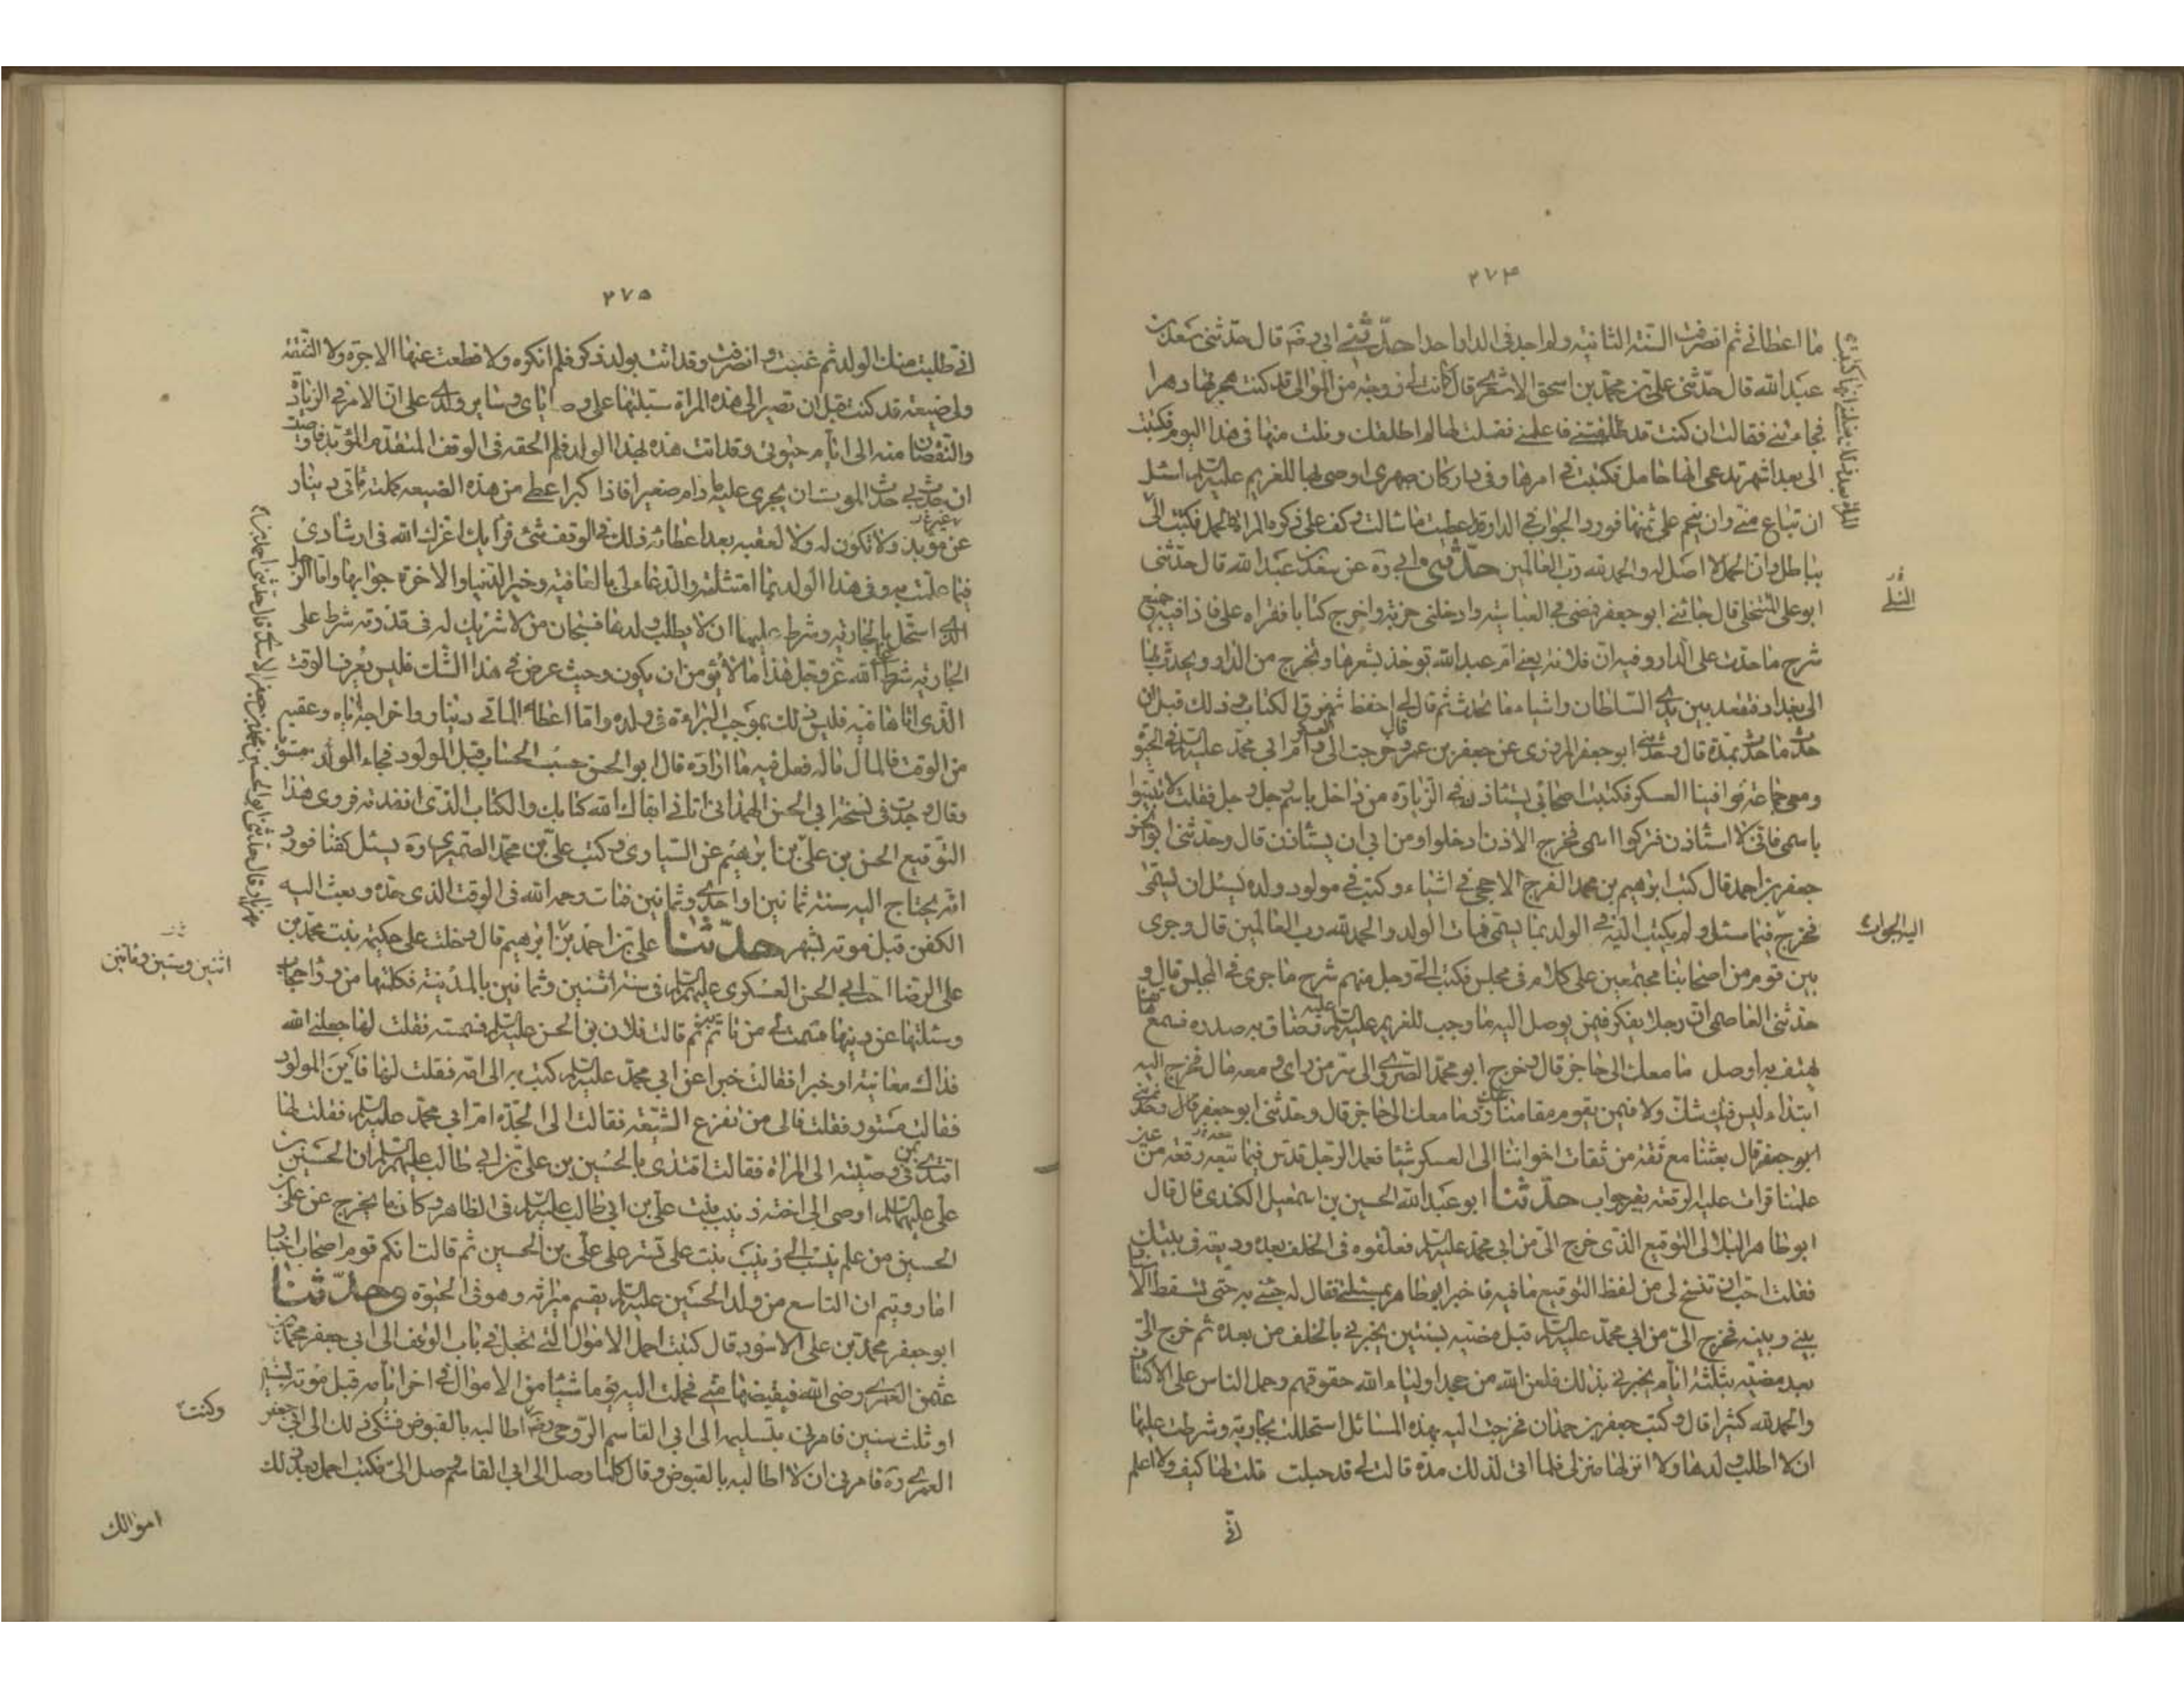 ٢٧۴
ما اعطانى ثم انصرفت السنة الثانية ولم اجد فى الدار احدا حدّثنى ابى رضه قال حدّثنى سعد بن
عبد الله قال حدّثنى علىّ بن محمّد بن اسحق الاشعرى قال كانت لى زوجة من الموالى قد كنت هجرتها دهرا
فجاءتنى فقالت ان كنت قد طلقتنى فاعلمنى فقلت لها لم اطلقك ونلت منها فى هذا اليوم فكتبت
الى بعد اشهر تدعى انها حامل فكتبت فى امرها وفى دار كان صهرى اوصى بها للغريم عليه السلم اسئل
ان تباع منى وان ينجم على ثمنها فورد الجواب فى الدار قد اعطيت ما سالت وكف عن ذكر المراة والحمل فكتبت الىّ
بباطل وان الحمل لا اصل له والحمد لله ربّ العالمين حدّثنى ابى ره عن سعد بن عبد الله قال حدّثنى
ابو على قال جائنى ابو جعفر فمضى بى الى العباسية وادخلنى خربة واخرج كتابا فقراه على فاذا فيه جميع
شرح ما حدث على الدار وفيه ان فلانة يعنى ام عبد الله توخذ بشعرها وتخرج من الدار ويحدر بها
الى بغداد فتقعد بين يدى السلطان واشياء مما تحدث ثم قال لى احفظ ثم مزق الكتاب وذلك قبل ان
حدث ما حدث بمدة قال وحدّثنى ابو جعفر المروزى عن جعفر بن عمرو قال خرجت الى العسكر وام ابى محمّد عليه السلم فى الحيوة
ومعى جماعة فوافينا العسكر فكتبت اصحابى يستاذنون فى الزيارة من داخل باسم رجل رجل فقلت لا تثبتوا
باسمى فانى لا استاذن فتركوا اسمى فخرج الاذن ادخلوا ومن ابى ان يستاذن قال وحدّثنى ابو الحسن
جعفر بن احمد قال كتب ابراهيم بن محمّد الفرج الرخجى فى اشياء وكتب فى مولود ولد له يسئل ان يسمّى
فخرج فيما سئل ولم يكتب اليه فى الولد بما يسمّى فمات الولد والحمد لله رب العالمين قال وجرى
بين قوم من اصحابنا مجتمعين على كلام فى مجلس فكتب الى رجل منهم شرح ما جرى فى المجلس قال و
حدثنى العاصمى ان رجلا يفكر فيمن يوصل اليه ما وجب للغريم عليه السلم وضاق به صدره فسمع هاتفا
يهتف به اوصل ما معك الى حاجز قال وخرج ابو محمّد السروى الى سرّ من راى ومعه مال فخرج اليه
ابتداء ليس فينا شك ولا فيمن يقوم مقامنا شك ورد ما معك الى حاجز قال وحدّثنى ابو جعفر قال وحدّثنى
ابو جعفر قال بعثنا مع ثقة من ثقات اخواننا الى العسكر شيئا فعمد الرجل فدس فيما معه رقعة من غير
علمنا فرات عليه الرقعة بغير جواب حدّثنا ابو عبد الله الحسين بن اسمعيل الكندى قال قال
ابو طاهر البلالى التوقيع الذى خرج الى من ابى محمّد عليه السلم فعلقوه فى الخلف بعده وديعة فى بيتك
فقلت احب ان تنسخ لى من لفظ التوقيع ما فيه فاخبر ابو طاهر بمسئلتى فقال له جئنى به حتّى يسقط الاسناد
بينى وبينه فخرج الىّ من ابى محمّد عليه السلم قبل مضيه بسنتين يخبرنى بالخلف من بعده ثم خرج الىّ
بعد مضيه بثلثة ايام يخبرنى بذلك فلعن الله من جحد اولياء الله حقوقهم وحمل الناس على اكتافهم
والحمد لله كثيرا قال وكتب جعفر بن حمدان فخرجت اليه هذه المسائل استحللت بجارية وشرطت عليها
ان لا اطلب ولدها ولا الزمها منزلى فلما اتى لذلك مدة قالت لى قد حبلت فقلت لها كيف ولا اعلم
انّى
اليه الجواب
٢٧۵
انّى طلبت منك الولد ثم غبت وانصرفت وقد اتت بولد ذكر فلم انكره ولا قطعت عنها الاجرة ولا النفقة
ولى ضيعة قد كنت قبل ان تصير الى هذه المراة سبلتها على وصاياى وسائر ولدى على ان الامر فى الزيادة
والنقصان منه الى ايام حيوتى وقد اتت هذه بهذا الولد فلم الحقه فى الوقف المتقدم المؤبد واوصيت
ان حدث بى حدث الموت ان يجرى عليه ما دام صغيرا فاذا كبر اعطى من هذه الضيعة جملة مائتى دينار
غير مؤبد ولا تكون له ولا لعقبه بعد اعطائه ذلك فى الوقف شئ فرايك اعزك الله فى ارشادى
فيما عملته وفى هذا الولد بما امتثله والدعاء لى بالعافية وخير الدنيا والاخرة جوابها واما الرجل
الذى استحل بالجارية وشرط عليها ان لا يطلب ولدها فسبحان من لا شريك له فى قدرته شرط على
الجارية شرط على الله عز وجل هذا ما لا يؤمن ان يكون وحيث عرض فى هذا الشك فليس يعرف الوقت
الذى اتاها فيه فليس ذلك بموجب البراءة فى ولده واما اعطاء المائتى دينار واخراجه اياه وعقبه
من الوقف فالمال ماله فعل فيه ما اراده قال ابو الحسن حسبت الحساب قبل المولود فجاء المولود مستويا
وقال وجدت فى نسخة ابى الحسن الهمدانى اتانى ابقاك الله كتابك والكتاب الذى انفذته فروى هذا
التوقيع الحسن بن علىّ بن ابرهيم عن السيارى وكتب علىّ بن محمّد الصيمرى ره يسئل كفنا فورد
انّه يحتاج اليه سنة ثمانين او احدى وثمانين فمات رحمه الله فى الوقت الذى حدّه وبعث اليه
الكفن قبل موته بشهر حدّثنا علىّ بن احمد بن ابرهيم قال دخلت على حكيمة بنت محمّد بن
على الرضا اخت ابى الحسن العسكرى عليهم السلم فى سنة اثنتين وثمانين بالمدينة فكلمتها من وراء حجاب
وسئلتها عن دينها فسمت لى من تاتم بهم ثم قالت فلان بن الحسن عليه السلم فسمته فقلت لها جعلنى الله
فداك معاينة او خبرا فقالت خبرا عن ابى محمّد عليه السلم كتب به الى امّه فقلت لها فاين المولود
فقالت مستور فقلت فالى من تفزع الشيعة فقالت الى الجدّة ام ابى محمّد عليه السلم فقلت لها
اقتدى بمن فى وصيته الى المراة فقالت اقتدى بالحسين بن على بن ابى طالب عليهم السلم ان الحسين بن
على عليهما السلم اوصى الى اخته زينب بنت على بن ابى طالب عليه السلم فى الظاهر وكان ما يخرج عن علىّ بن
الحسين من علم ينسب الى زينب بنت على تسترا على علىّ بن الحسين ثم قالت انكم قوم اصحاب اخبار
اما رويتم ان التاسع من ولد الحسين عليه السلم يقسم ميراثه وهو فى الحيوة وحدّثنا
ابو جعفر محمّد بن على الاسود قال كنت احمل الاموال التى تجعل فى باب الوقف الى ابى جعفر محمّد بن
عثمن العمرى رضى الله فيقبضها منى فحملت اليه يوما شيئا من الاموال فى اخر ايامه قبل موته بسنتين
او ثلث سنين فامرنى بتسليمه الى ابى القاسم الروحى رضه اطالبه بالقبوض فشكى ذلك الى ابى جعفر
العمرى ره فامرنى ان لا اطالبه بالقبوض وقال كلما وصل الى ابى القاسم وصل الىّ فكنت احمل بعد ذلك
اثنين وستين ومأتين
وكنت
اموالك